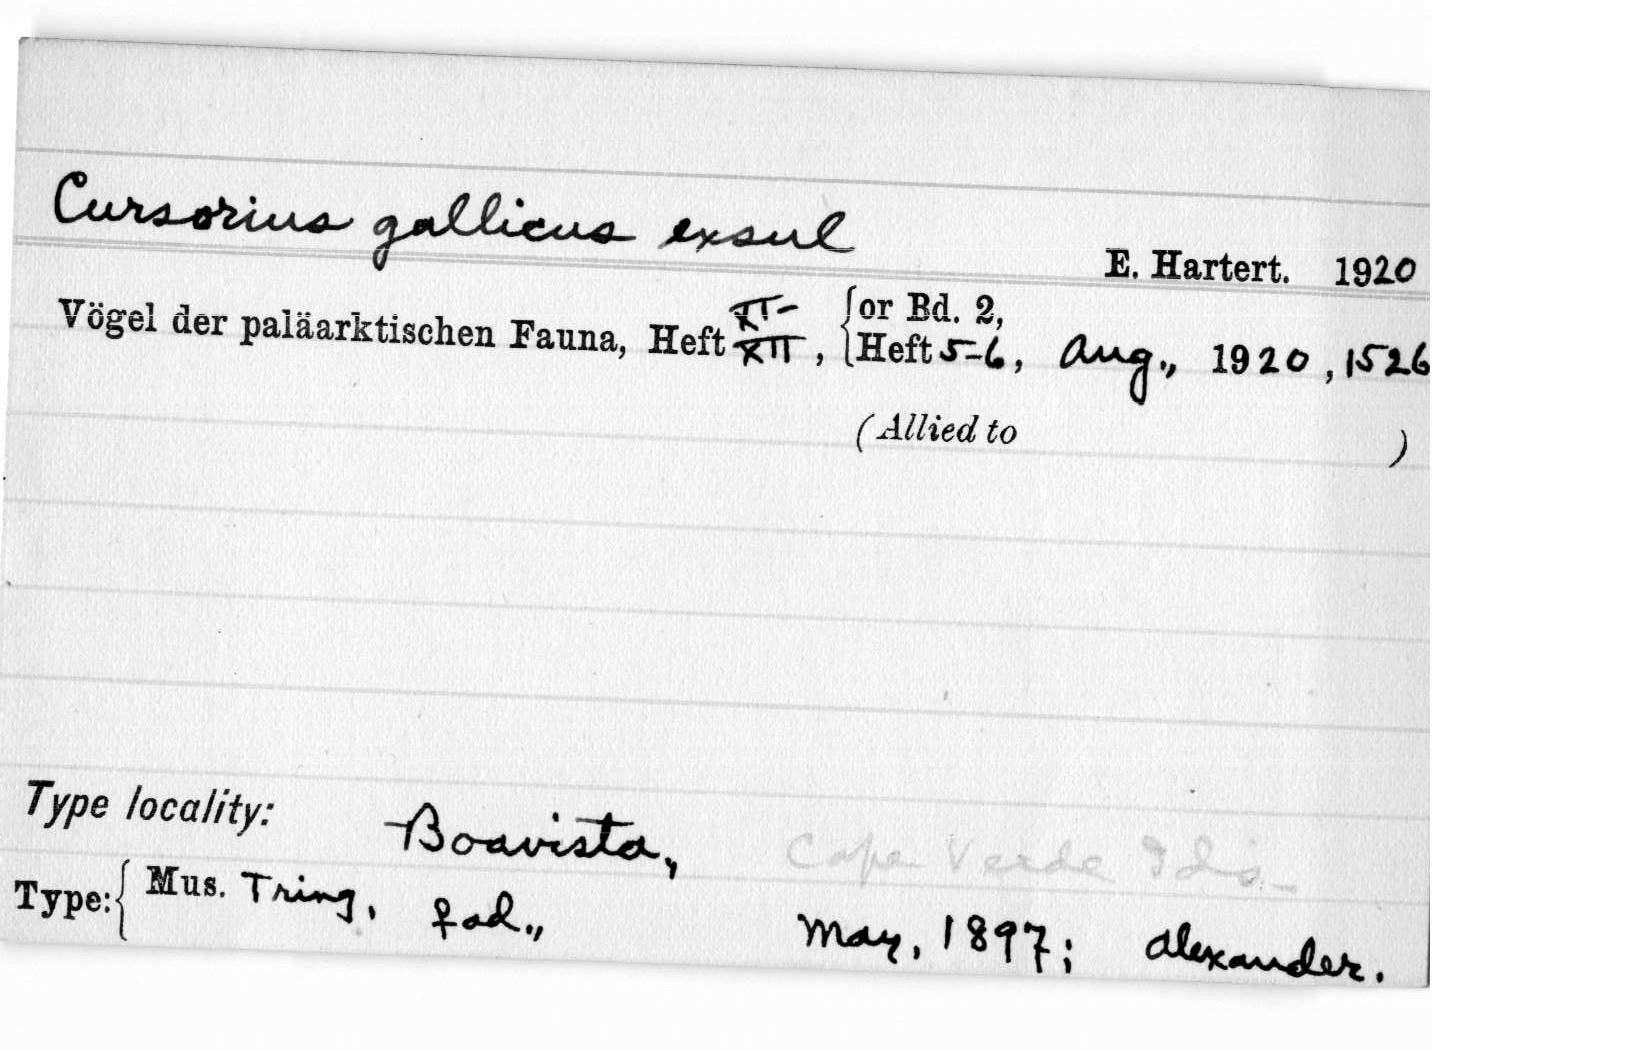 Cursorius gallicus exsul
E. Hartert. 1920
Vögel der paläarktischen Fauna, Heft XI-XII, {or Bd. 2, Heft 5-6, Aug., 1920, 1526
(Allied to )
Type locality: Boavista, Cape Verde Ids.
Type: { Mus. Tring, ♀ ad., May, 1897; Alexander.